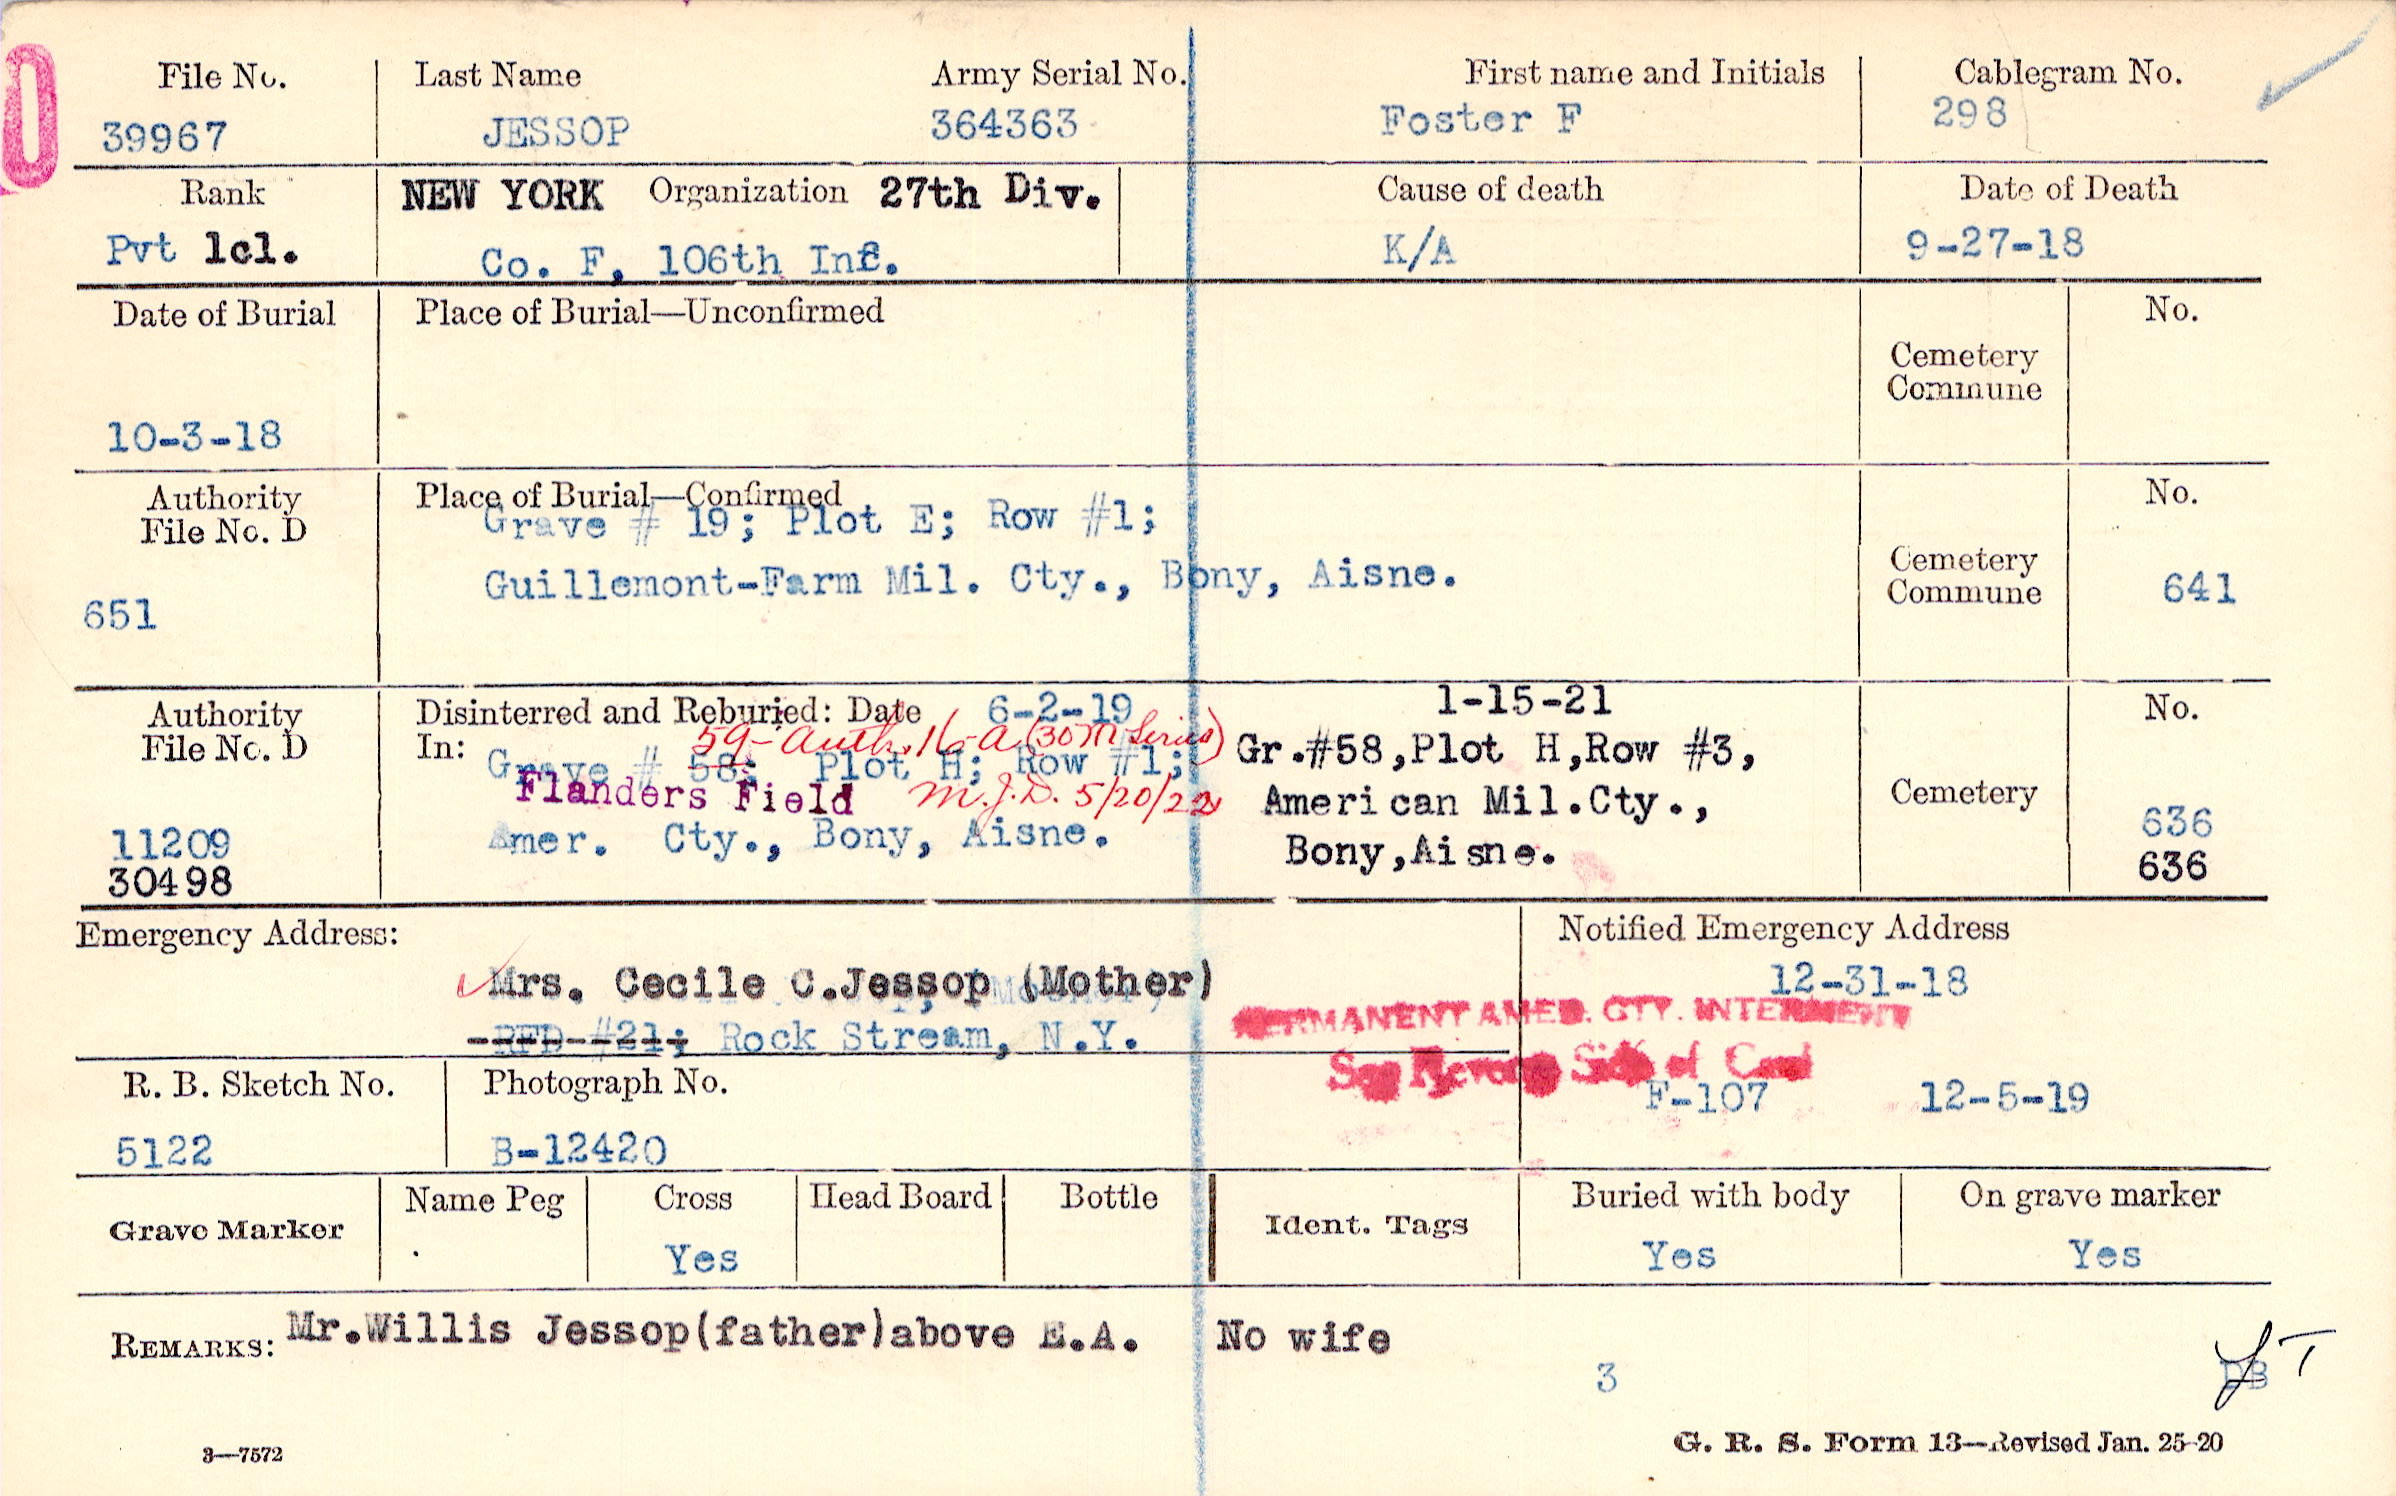 0
File No.
Last Name
Army Serial No.
First name and Initials
Cablegram No.
39967
JESSOP
364363
Foster F
298
Rank
NEW YORK
Organization
27th Div.
Cause of death
Date of Death
Pvt 1cl.
Co. F, 106th Inf.
K/A
9-27-18
Date of Burial
Place of Burial—Unconfirmed
Cemetery
Commune
No.
10-3-18
Authority
File No. D
651
Place of Burial—Confirmed
Grave # 19; Plot E; Row #1;
Guillemont-Farm Mil. Cty., Bony, Aisne.
Cemetery
Commune
No.
641
Authority
File No. D
11209
30498
Disinterred and Reburied: Date 6-2-19
59-Auth. 16-A (30 M Series)
In: Grave # 58; Plot H; Row #1;
Flanders Field
M.J.D. 5/20/22
Amer. Cty., Bony, Aisne.
1-15-21
Gr.#58,Plot H,Row #3,
American Mil.Cty.,
Bony,Aisne.
Cemetery
No.
636
636
Emergency Address:
Mrs. Cecile C.Jessop (Mother)
RFD #21; Rock Stream, N.Y.
Notified Emergency Address
12-31-18
PERMANENT AMER. CTY. INTERMENT
See Reverse Side of Card
F-107 12-5-19
R. B. Sketch No.
5122
Photograph No.
B-12420
Grave Marker
Name Peg
Cross
Yes
Head Board
Bottle
Ident. Tags
Buried with body
Yes
On grave marker
Yes
REMARKS: Mr.Willis Jessop(father)above E.A. No wife
3
DB
3—7572
G. R. S. Form 13—Revised Jan. 25-20